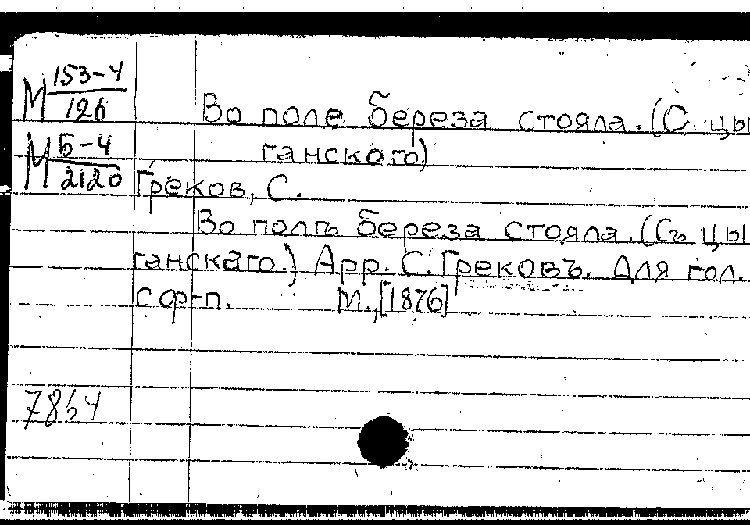 М 153-4/126
Во поле береза стояла. (С цы
ганского)
М Б-4/2120
Греков, С.
Во полѣ береза стояла. (Съ цы
ганскаго.) Арр. С. Грековъ. Для гол.
с ф-п. М., [1876]